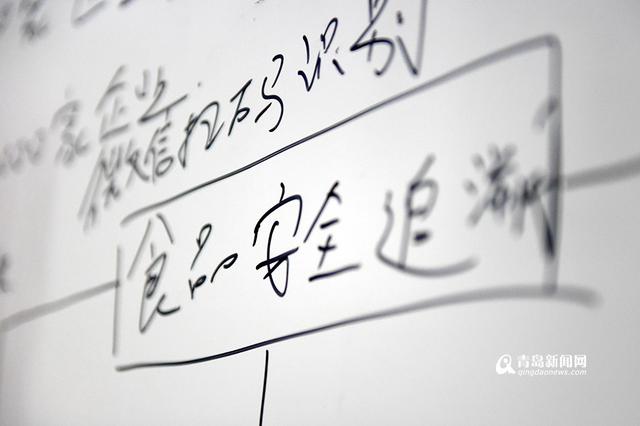 家企业
微信扫码识别
食品安全追溯
青岛新闻网
qingdaonews.com